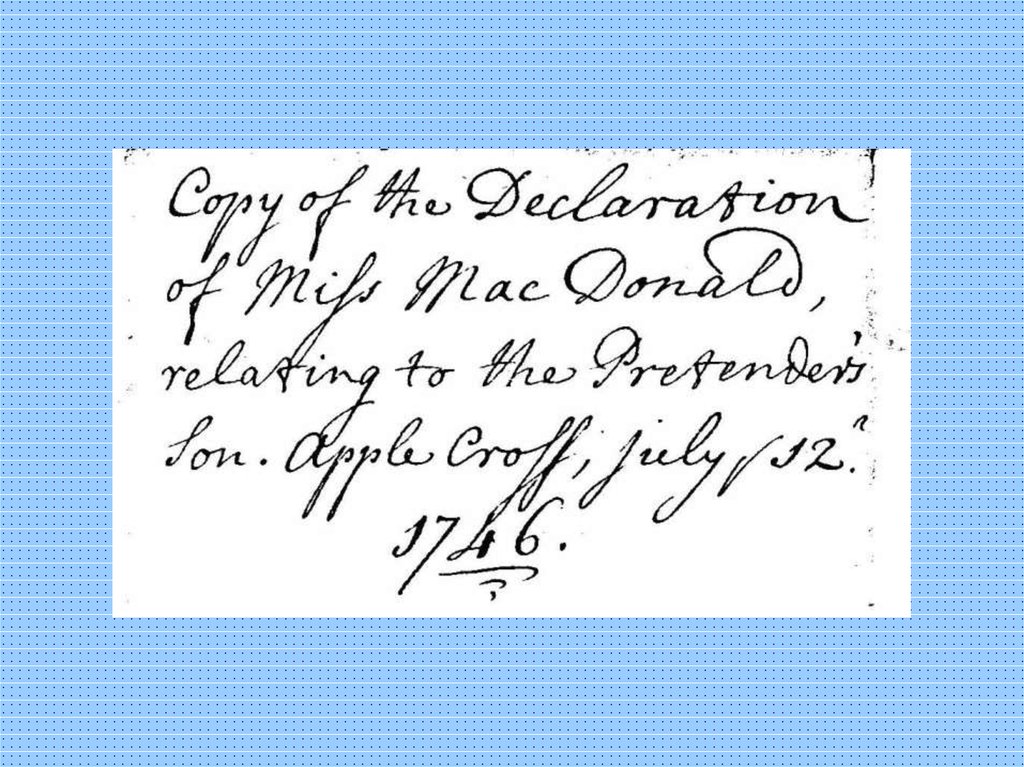 Copy of the Declaration
of Miſs Mac Donald,
relating to the Pretender's
Son. Apple Croſs, July 12.
1746.